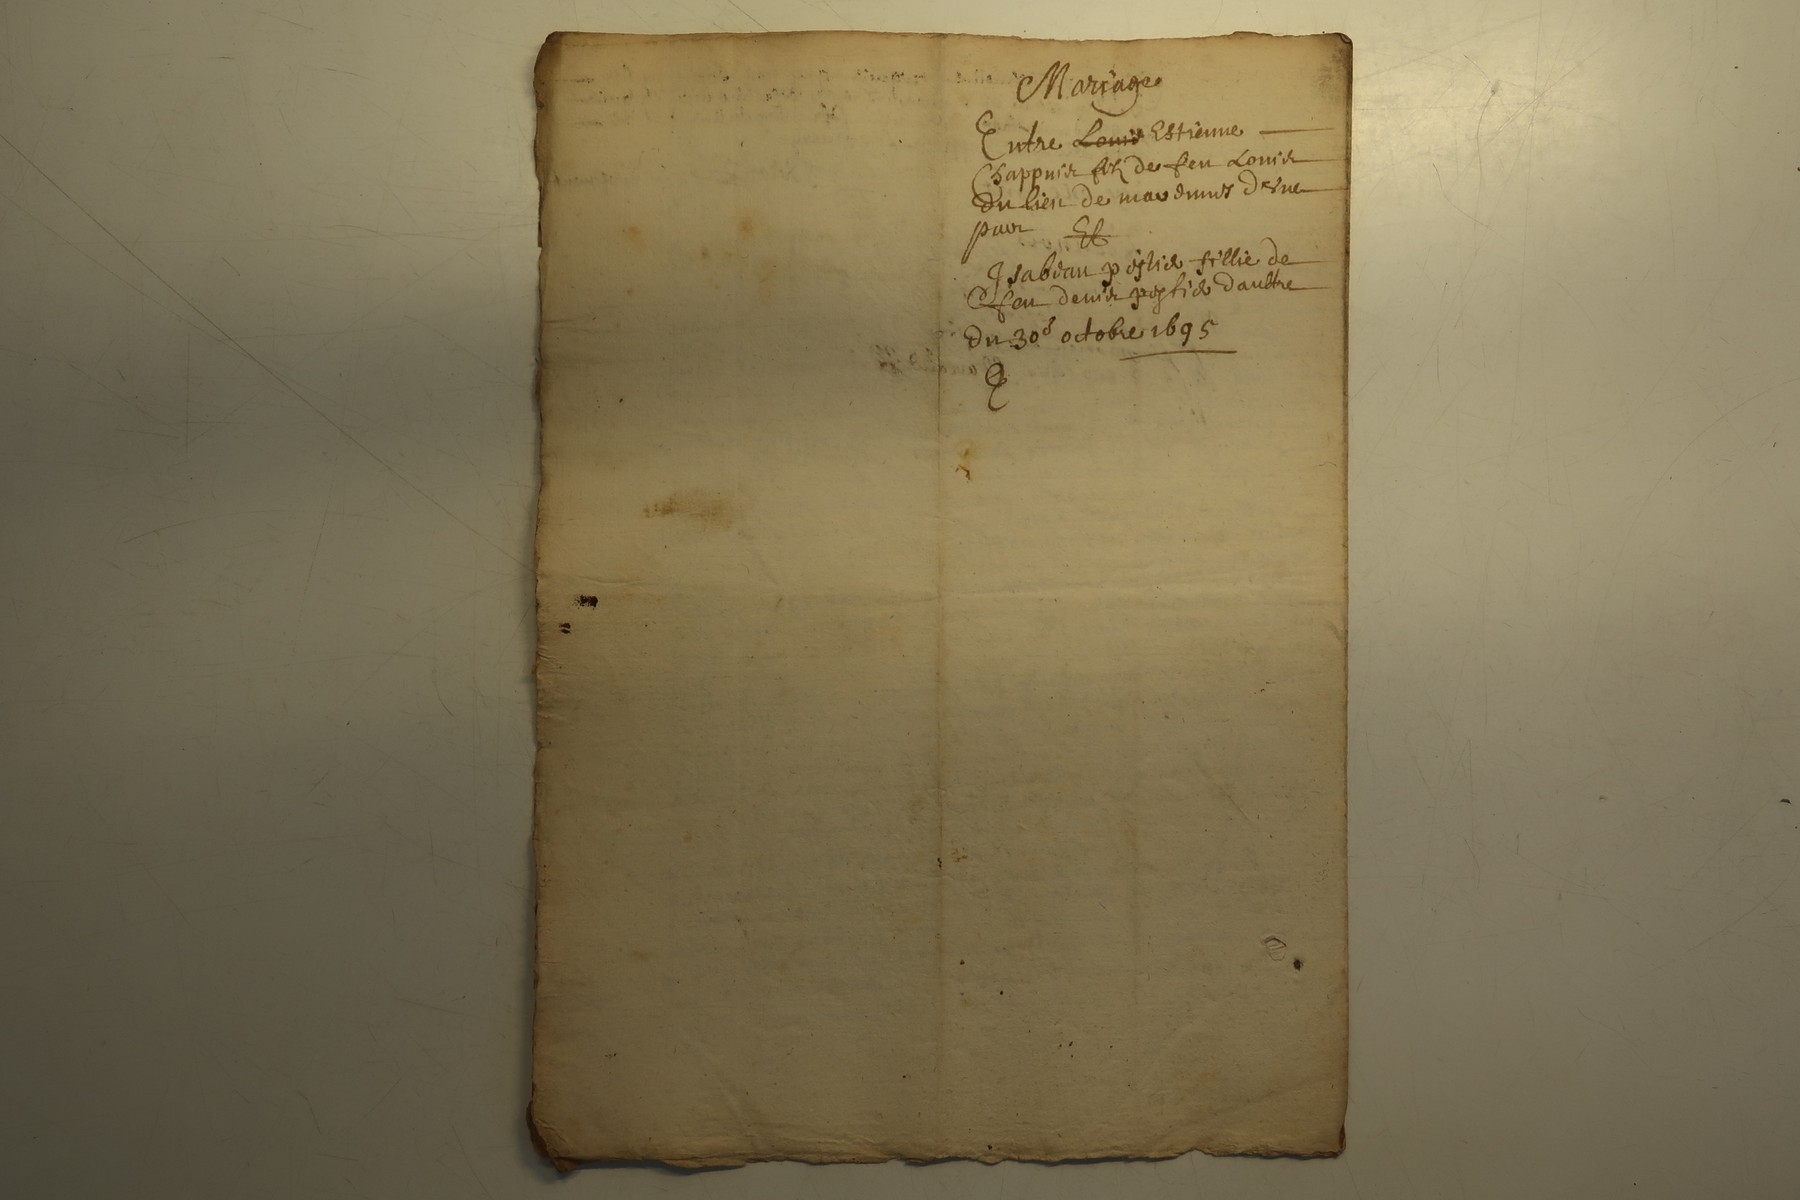 Mariage
Entre Louis Estienne
Chappuis filz de feu Louis
du lieu de d'vne
part Et
Isabeau fillie de
feu denis d'aultre
du 30e octobre 1695